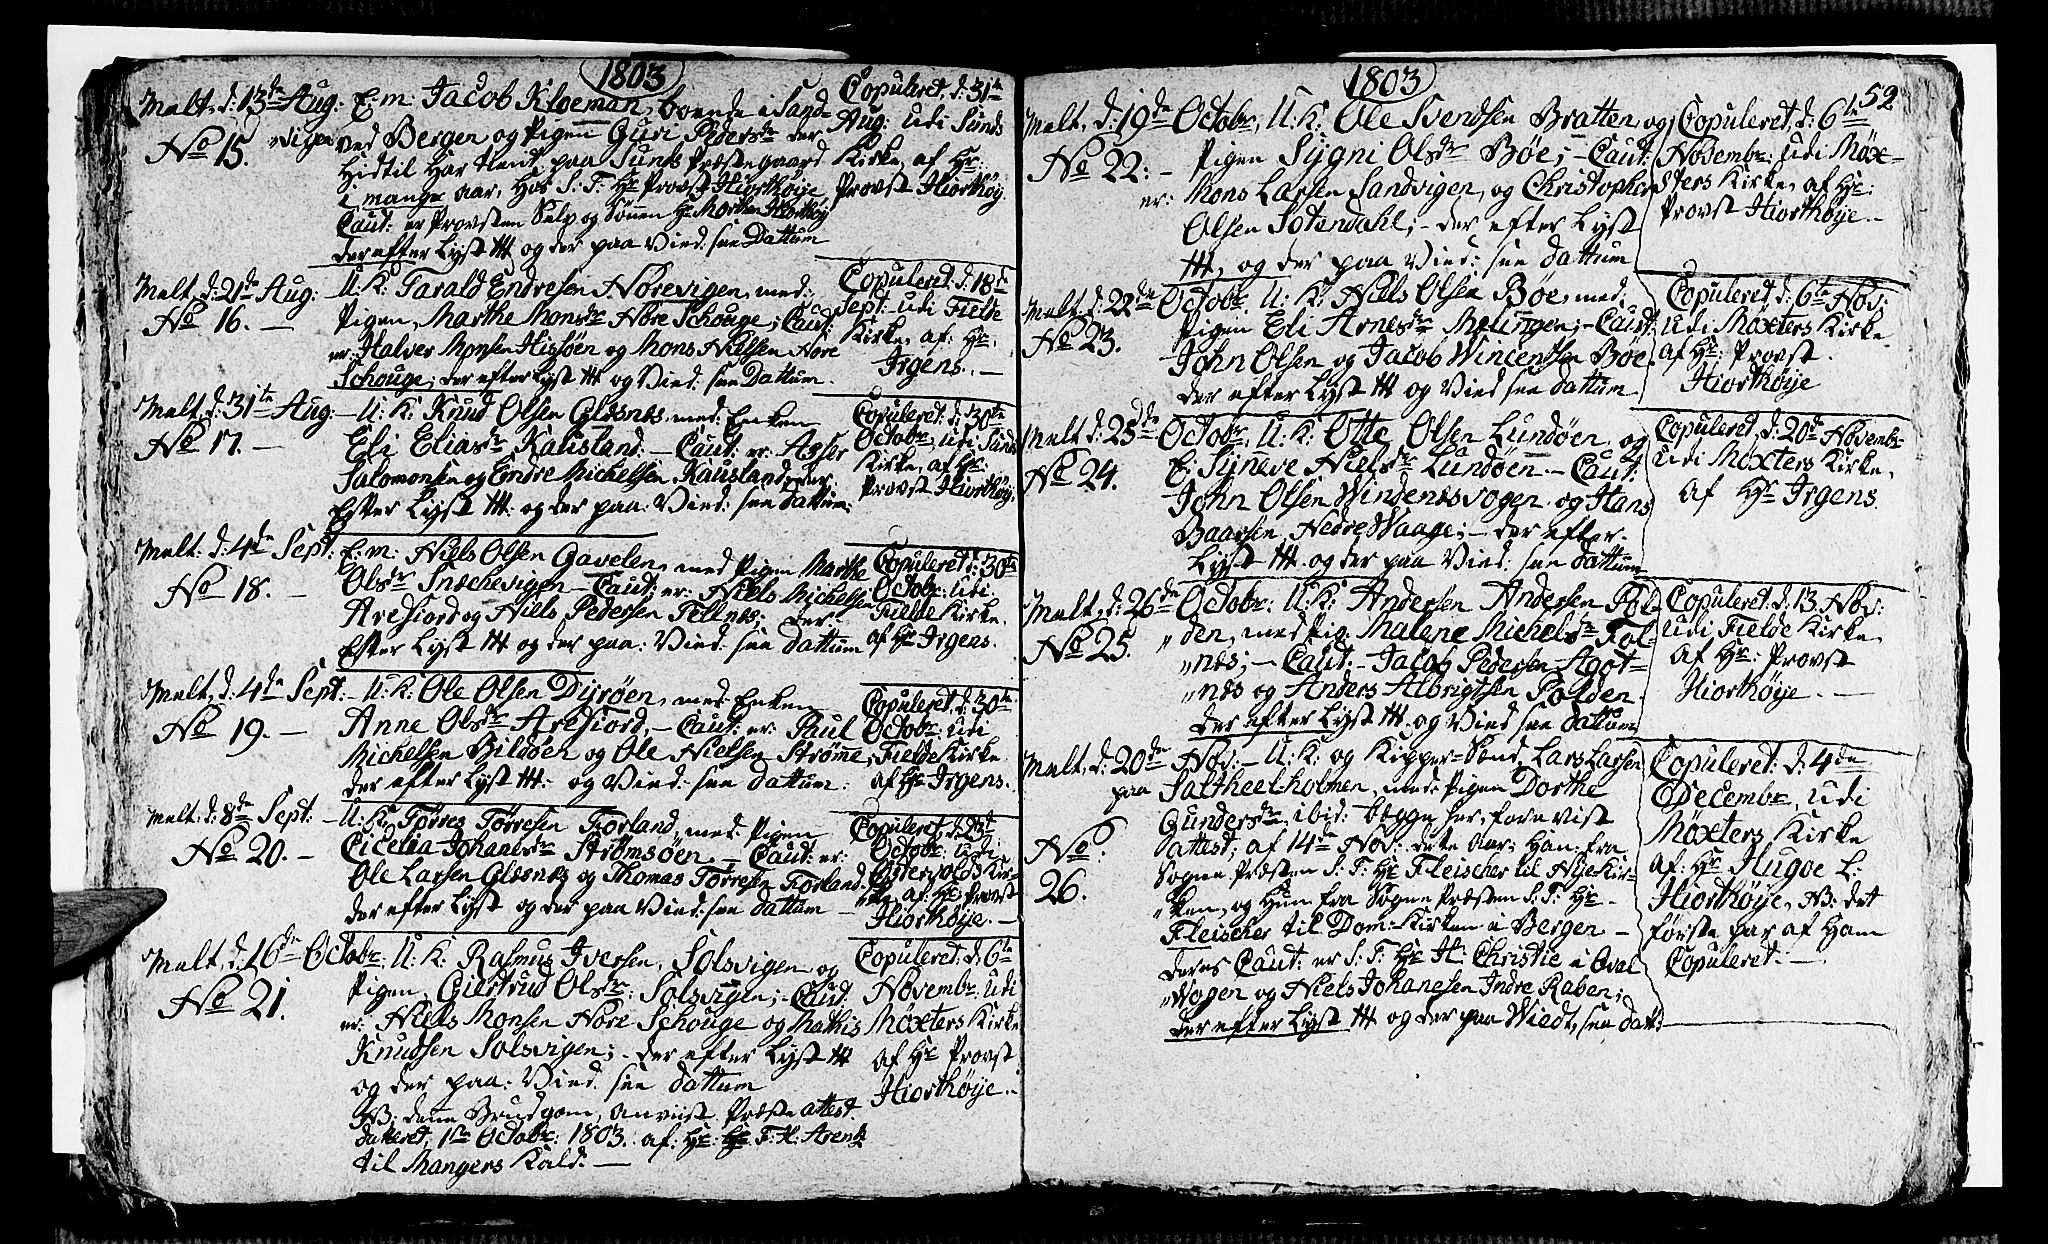 1803
Melt, d: 13de Aug: E: m: Jacob Kloeman, boende i Sand-
No 15. vigen ved Bergen og Pigen Guri Pedersdr der
hidtil har tient paa Sunds Præstegaard
i mange aar, hos S. T. Hr Provst Hiorthøije
Caut: er Provsten Selv og Sønnen Hr Morten Hiorthøy
der efter Lyst ttt og der paa Vied: see Dattum
Copuleret, d: 31te
Aug: udi Sunds
Kirke, af Hr:
Provst Hiorthøy.
Melt, d: 21de Aug: U: K: Tarald Endresen Nørevigen, med:
No 16. — Pigen, Marthe Monsdr Nore Schouge; Caut:
er: Halver Monsen Hissøen og Mons Nielsen Nore
Schouge; der efter Lyst ttt og Vied: see Dattum.
Copuleret, d: 18de
Sept: udi Fielde
Kirke, af: Hr:
Irgens. —
Melt, d: 31te Aug: — U: K: Knud Olsen Glesnes, med: Enken
No 17. — Eli Eliasdr Kausland. — Caut: er: Asser
Salomonsen og Endre Michelsen Kausland, der:
Efter Lyst ttt: og der paa: Vied: see dattum:
Copuleret: d: 30te
Octobr, udi Sunds
Kirke, af Hr:
Provst Hiorthøij.
Melt: d: 4de Sept: E: m: Niels Olsen Gavelen, med Pigen Marthe
No 18. — Olsdr Snechevigen — Caut; er: Niels Michelsen
Arefiord og Niels Pedersen Tellnes; der-
Efter Lyst ttt og der paa: Vied: see dattum
Copuleret d: 30te
Octobr: udi
Fielde Kirke,
af Hr Irgens.
Melt, d: 4de Sept: — U: K: Ole Olsen Dyrøen, med Enken
No 19. — Anne Olsdr Arefiord, — Caut: er: Paul
Michelsen Bildøen og Ole Nielsen Strømme,
der efter Lyst ttt: og Vied: see dattum:
Copuleret, d: 30te
Octobr: udi
Fielde Kirke
af Hr Irgens.
Melt, d: 8de Sept: — U: K: Tørres Tørresen Forland, med: Pigen
No 20. — Cicelia Johansdr Strømsøen — Caut: er:
Ole Larsen Glesnes og Thomas Tørresen Forland.
der efter Lyst og der paa Vied: see dattum —
Copuleret, d: 23d
Octobr: udi
Østervolds Kir-
ke af Hr Provst
Hiorthøije. —
Melt, d: 16de Octobr, U: K: Rasmus Iversen, Solsvigen, og
No 21. Pigen, Giertrud Olsdr: Solsvigen; — Caut:
er: Niels Monsen Nore Schouge og Mathis
Knudsen Solsvigen; — der efter Lyst ttt
og der paa: Vied: see dattum
NB: denne Brudgom, anviist Præste attest
datteret, 1te Octobr: 1803. af: Hr: Hr T. H. Arentz
til Mangers Kald: —
Copuleret: d: 6te
Novembr: udi
Møxters Kirke
af Hr Provst
Hiorthøije.
1803
52
Melt, d: 19de Octobr, U: K: Ole Svendsen Bratten, og
No 22: — Pigen Sygni Olsdr Bøe; — Caut:
er: Mons Larsen Sandvigen, og Christopher
Olsen Sotendahl; — der efter Lyst
ttt, og der paa Vied: see dattum
Copuleret, d: 6te
Novembr: udi Møx-
sters Kirke, af Hr:
Provst Hiorthøije. —
Melt, d: 22de Octobr. U: K: Niels Olsen Bøe, med.
No 23. Pigen Eli Arnesdr Melingen; — Caut:
John Olsen og Jacob Wincentsen Bøe
der efter Lyst ttt og Vied see dattum.
Copuleret d: 6te Nov:
udi Møxters Kirke
af Hr: Provst.
Hiorthøije
Melt d: 25de Octobr, U: K: Otte Olsen Lundøen, og
No 24. E: Syneve Nielsdr Lundøen. — Caut:
John Olsen Windenesvogen og Hans
Baarsen, Nedre Waage; — der efter
Lyst ttt. og der paa Vied: see dattum
Copuleret, d: 20de Novembr
udi Møxters Kirke,
af Hr Irgens.
Melt, d: 26de Octobr: U: K: Andersen Andersen Pol-
No 25. den, med Pig: Malene Michelsdr Tol-
nes; — Caut: — Jacob Pedersen Agot-
nes og Anders Albrigtsen Polden.
der efter Lyst ttt. og Vied see dattum
Copuleret: d: 13. Nov:
udi Fielde Kirke,
af Hr: Provst
Hiorthøije. —
Melt, d: 20de Nov: — U: K: og Kipper-Svend, Lars Larsen
paa Saltheel-holmen, med Pigen Dorthe
Gundersdr, ibid: begge her, forevist
No: attest; af 14de Nov: dette Aar; Han: fra
26. Sogne Præsten S: T: Hr Fleischer til Nije Kir-
ken, og Hun fra Sogne Præsten S: T: Hr
Fleischer til Dom-Kirken i Bergen —
deres Caut: er S: T: Hr H: Christie i Qval
Wogen og Niels Johanesen Indre Raben;
der efter Lyst ttt og der paa Wiedt, see datt:
Copuleret: d: 4de
Decembr, udi
Møxters Kirke
af: Hr Hugoe L:
Hiorthøije, NB: det
første par af Ham
Copuleret: —